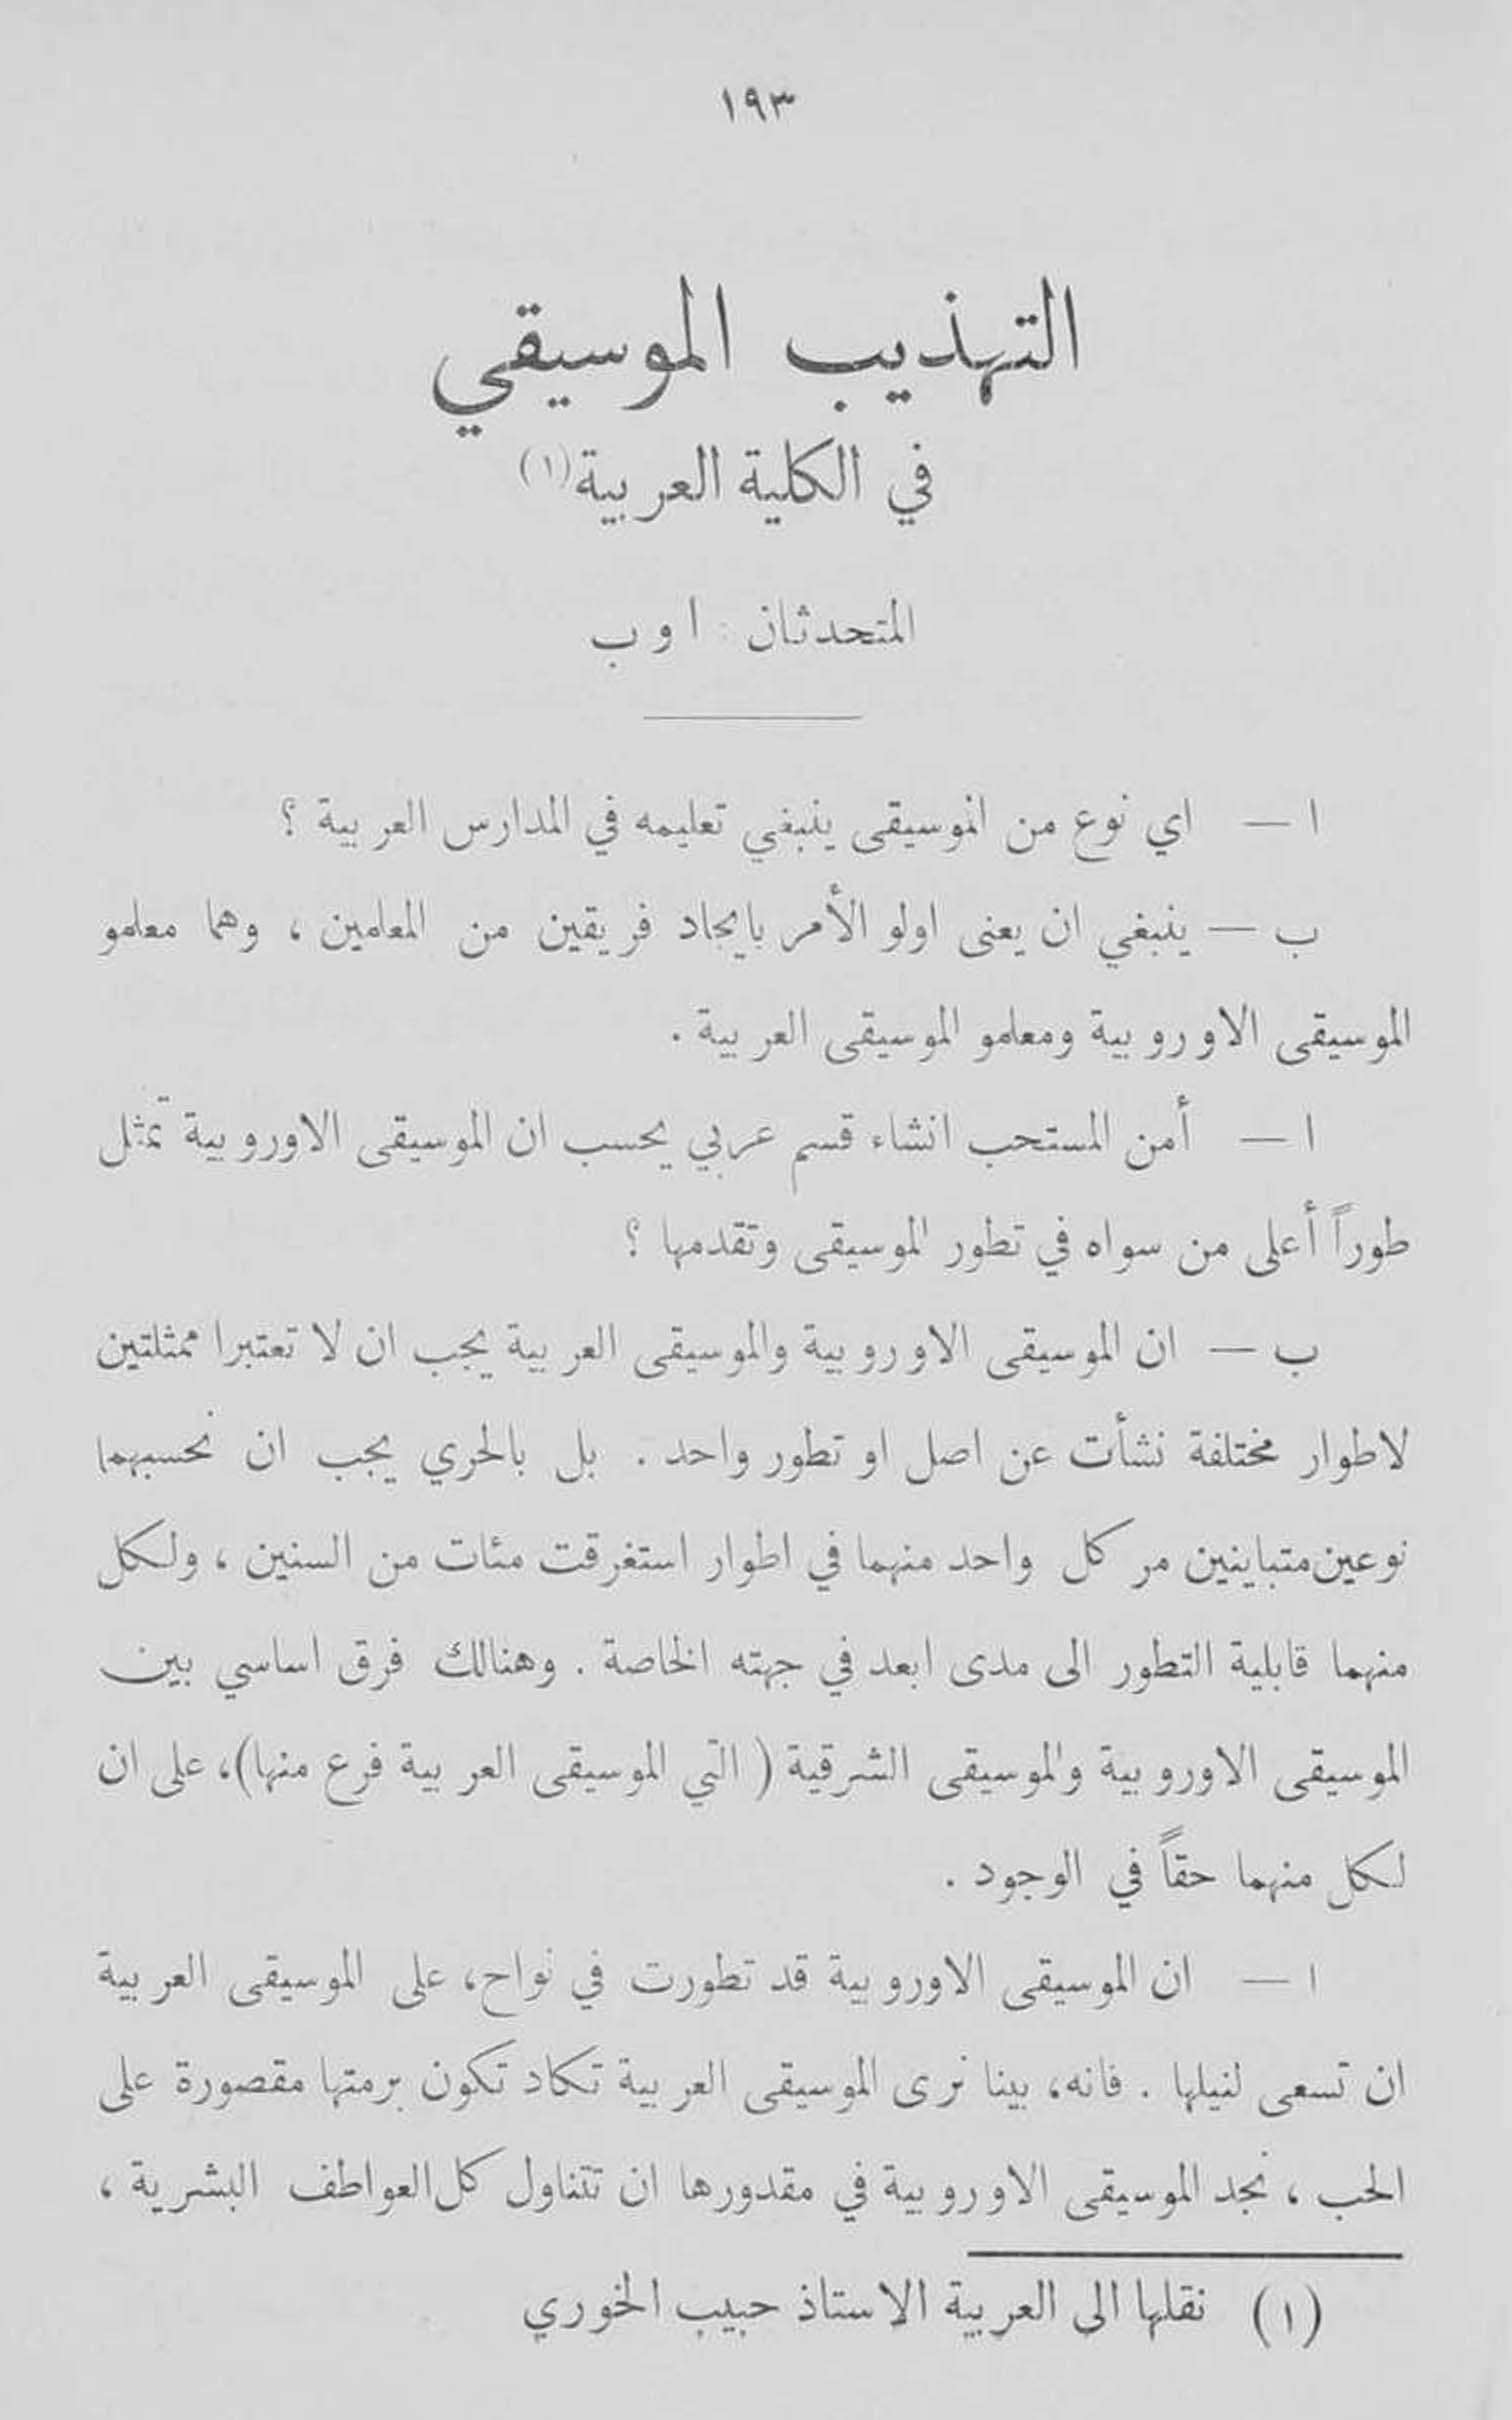 ١٩٣
التهذيب الموسيقي
في الكلية العربية (١)
المتحدثان : ا و ب
ا — اي نوع من الموسيقى ينبغي تعليمه في المدارس العربية ؟
ب — ينبغي ان يعنى اولو الأمر بايجاد فريقين من المعلمين ، وهما معلمو
الموسيقى الاوروبية ومعلمو الموسيقى العربية .
ا — أمن المستحب انشاء قسم عربي يحسب ان الموسيقى الاوروبية تمثل
طوراً أعلى من سواه في تطور الموسيقى وتقدمها ؟
ب — ان الموسيقى الاوروبية والموسيقى العربية يجب ان لا تعتبرا ممثلتين
لاطوار مختلفة نشأت عن اصل او تطور واحد . بل بالحري يجب ان نحسبهما
نوعين متباينين مر كل واحد منهما في اطوار استغرقت مئات من السنين ، ولكل
منهما قابلية التطور الى مدى ابعد في جهته الخاصة . وهنالك فرق اساسي بين
الموسيقى الاوروبية والموسيقى الشرقية ( التي الموسيقى العربية فرع منها )، على ان
لكل منهما حقاً في الوجود .
ا — ان الموسيقى الاوروبية قد تطورت في نواح، على الموسيقى العربية
ان تسعى لنيلها . فانه، بينا نرى الموسيقى العربية تكاد تكون برمتها مقصورة على
الحب ، نجد الموسيقى الاوروبية في مقدورها ان تتناول كل العواطف البشرية ،
(١) نقلها الى العربية الاستاذ حبيب الخوري